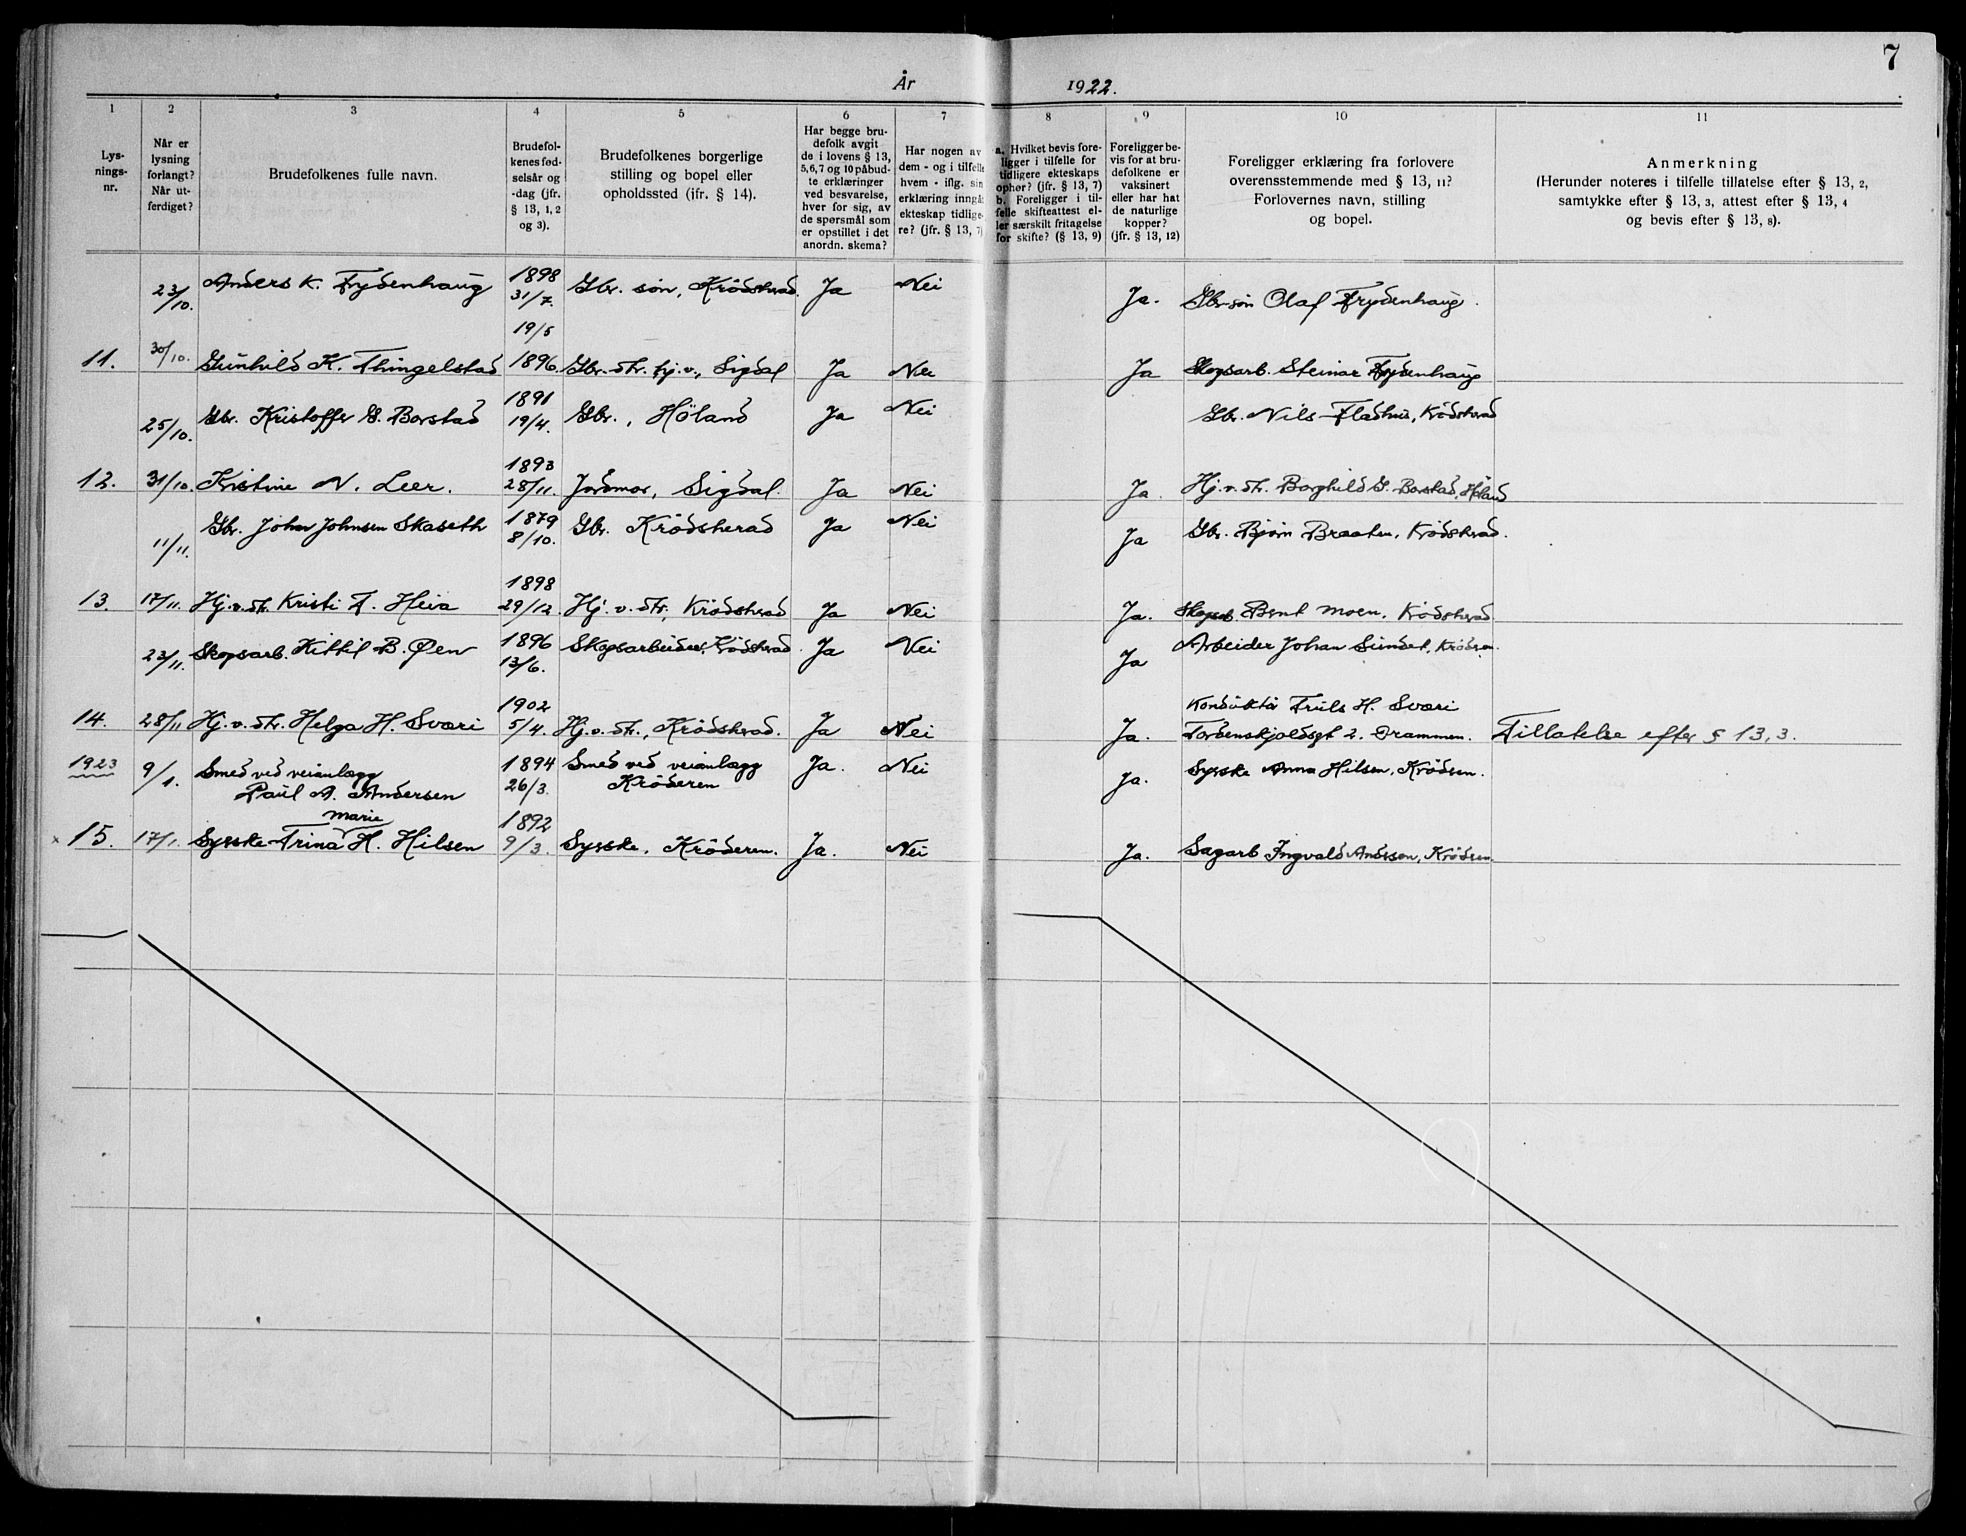 7
År 1922.
1 2 3 4 5 6 7 8 9 10 11
Lys-
nings-
nr.
Når er
lysning
forlangt?
Når ut-
ferdiget?
Brudefolkenes fulle navn.
Brudefol-
kenes fød-
selsår og
-dag (jfr.
§ 13, 1, 2
og 3).
Brudefolkenes borgerlige
stilling og bopel eller
opholdssted (ifr. § 14).
Har begge bru-
defolk avgit
de i lovens § 13,
5,6,7 og 10 påbud-
te erklæringer
ved besvarelse,
hver for sig, av
de spørsmål som
er opstillet i det
anordn. skema?
Har nogen av
dem - og i tilfelle
hvem - iflg. sin
erklæring inngåt
ekteskap tidlige-
re? (jfr. § 13, 7)
a. Hvilket bevis fore-
ligger i tilfelle for
tidligere ekteskaps
ophør? (jfr. § 13, 7)
b. Foreligger i til-
felle skifteattest el-
ler særskilt fritagelse
for skifte? (§ 13, 9)
Foreligger be-
vis for at bru-
defolkene er
vaksinert
eller har hat
de naturlige
kopper?
(jfr. § 13, 12)
Foreligger erklæring fra forlovere
overensstemmende med § 13, 11?
Forlovernes navn, stilling
og bopel.
Anmerkning
(Herunder noteres i tilfelle tillatelse efter § 13, 2,
samtykke efter § 13, 3, attest efter § 13, 4
og bevis efter § 13, 8).
23/10. Anders K. Frydenhaug 1898 31/7. Gbr. søn, Krödsherad. Ja Nei Ja. Gbr-søn Olaf Frydenhaug.
11. 30/10. Gunhild K. Thingelstad 19/5 1896. Gbr. dtr. tj. v., Sigdal Ja Nei Ja Skogsarb. Steinar Frydenhaug
25/10. Gbr. Kristoffer G. Borstad 1891 19/4. Gbr., Höland Ja Nei Gbr. Nils Fladhus, Krödsherad
12. 31/10. Kristine N. Leer. 1893 28/11. Jordmor, Sigdal. Ja Nei Ja. Hj. v. dtr. Borghild G. Borstad, Höland
11/11. Gbr. Johan Johnsen Skaseth 1879 8/10. Gbr. Krödsherad Ja Nei Ja Gbr. Bjørn Braaten, Krödsherad.
13. 17/11. Hj. v. dtr. Kristi A. Heia 1898 29/12 Hj. v. dtr, Krödsherad Ja Nei Ja. Skogsarb. Bent Moen. Krödsherad
23/11. Skogsarb. Kittil B. Øen 1896 13/6. Skogsarbeider, Krödsherad. Ja Nei Ja Arbeider Johan Sundet, Krödern.
14. 28/11 Hj. v. dtr. Helga H. Sværi 1902 5/4. Hj. v. dtr., Krödsherad. Ja Nei Ja. Konduktör Truls H. Sværi
Tordenskjoldsgt 2. Drammen. Tillatelse efter § 13, 3.
1923 9/1. Smed ved veianlægg
Paul A. Andersen 1894 26/3. Smed ved veianlægg
Kröderen Ja. Nei Ja. Syerske Anna Hilsen, Krödern.
15. 17/1. Syerske Trina Marie H. Hilsen 1892 9/3. Syerske, Kröderen. Ja. Nei Ja. Sagarb Ingvald Anderson, Krödern.